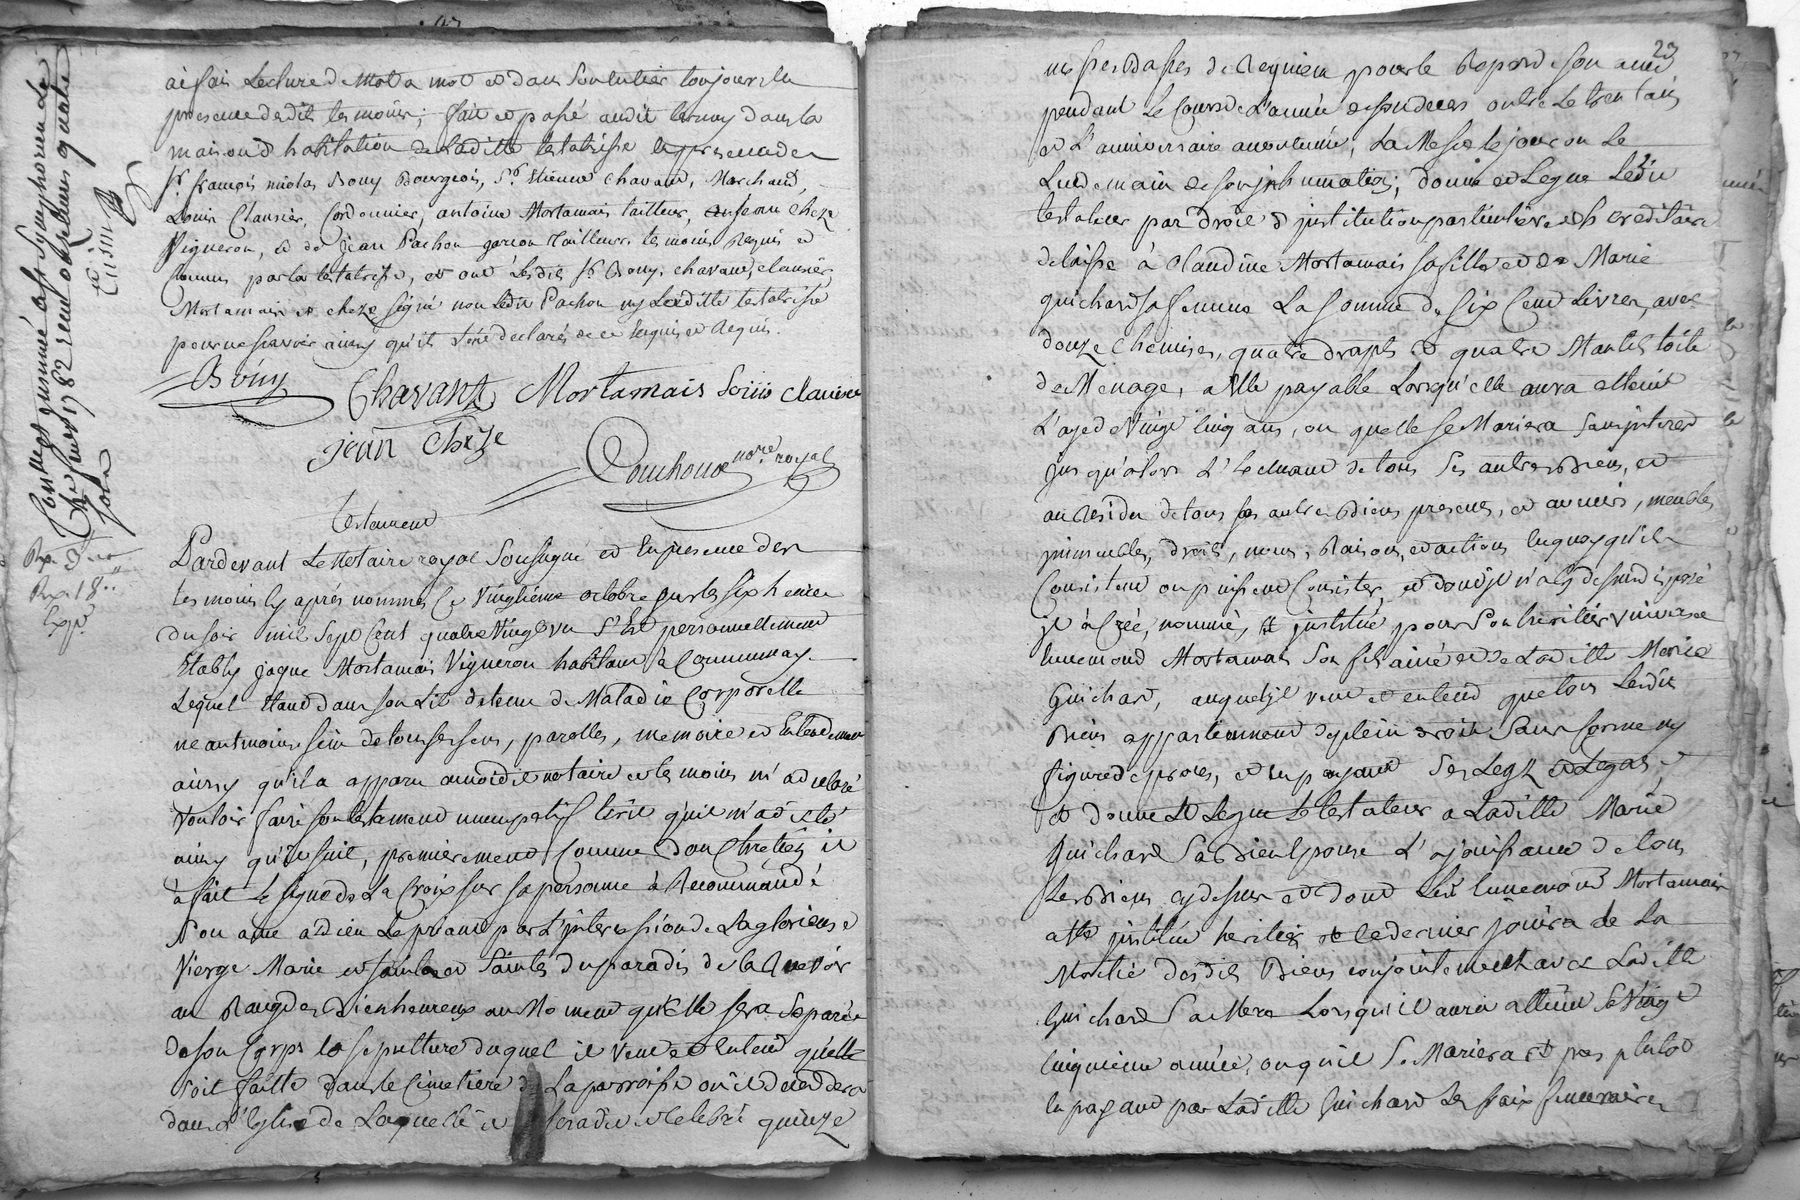 ai fait Lecture de Mot a mot et dans son entier toujours en
presence desdits temoins; fait et passé audit ternay dans la
maison d'habitation de Laditte testatrisse en presence de
Sr. françois nicolas Bouy Bourgeois, Sr. Etienne chavant, Marchand,
Louis Clausier, Cordonnier, antoine Mortamais tailleur, jean cheze
Vigneron, et de jean Pachon garcon Tailleur temoins Requis et
connus par la testatrisse, et ont Lesdits Sr Bouy, chavant, clausier,
Mortamais et cheze signé non Ledit Pachon ny Laditte testatrisse
pour ne sçavoir ainsy qu'ils L'ont declarés de ce Enquis et Requis.
Bouy Chavant Mortamais Louis clausier
jean cheze
Couchoud nore. royal
Testament
Pardevant Le Notaire royal Soussigné et En presence des
temoins cy après nommés Ce Vingtième octobre sur les six heures
du soir mil Sept Cent quatre Vingt un S'Est personnellement
Etably jaque Mortamais Vigneron habitant à Communay
Lequel Etant dans son Lit detenu de Maladie Corporelle
neantmoins sein de tous ses sens, parolles, memoire et Entendement
ainsy qu'il a apparu a moidit notaire et temoins m'a declaré
Vouloir faire son testament nuncupatif Ecrit qu'il m'a dicté
ainsy qu'il suit, premierement Comme bon Chretien il
à fait le signe de La Croix sur sa personne à Recommandé
son ame a dieu Le priant par L'intercession de La glorieuse
Vierge Marie et saints et Saintes du paradis de la Recevoir
au Rang des Bienheureux au Moment qu'Elle sera Separée
de son Corps la sepulture duquel il veut et Entend qu'elle
soit faitte dans le Cimetiere de La parroisse où il decedera
dans L'Eglise de Laquelle il sera dit et celebré quinze
23
messes Basses de Requiem pour le Repos de son ame
pendant Le Cours de L'année de son deces outre Le trentain
et L'anniversaire accoutumé, La Messe le jour ou Le
Lendemain de son inhumation; donne et Legue Ledit
testateur par droit d'institution particulière et hereditaire
delaisse à Claudine Mortamais sa fille et de Marie
guichard sa femme La somme de six Cent Livres, avec
douze Chemises, quatre draps et quatre Mantils toile
de Menage, a Elle payable Lorsqu'elle aura atteint
L'age de Vingt Cinq ans, ou quelle se Mariera sans interet
jusqu'alors L'Excluant de tous Ses autres Biens, et
au Residu de tous ses autres Biens presents, et avenirs, meubles,
immeubles, droits, noms, Raisons, et actions en quoy qu'ils
Consistent ou puissent Consister, et dont il n'a cy dessus disposé
il à Créé, nommé, et institué pour son heritier universel
Ennemond Mortamais son fils ainé et de Laditte Marie
Guichard, auquel il veut et entend que tous Lesdits
Biens appartiennent de plein droit Sans forme ny
figure de procès, et en payant Ses Legs et Legats,
et donne et Legue Le testateur a Laditte Marie
Guichard Sa Bien Epouse L'ajouissance de tous
Les Biens cy dessus et dont Ledit Ennemond Mortamais
a Eté institué heritier et ce dernier joüira de La
Moitié desdits Biens conjointement avec Laditte
Guichard Sa Mere Lorsqu'il aura atteint Sa Vingt
Cinquieme année, ou qu'il Se Mariera et pas plutot
En payant par Laditte Guichard Les fraix funeraires